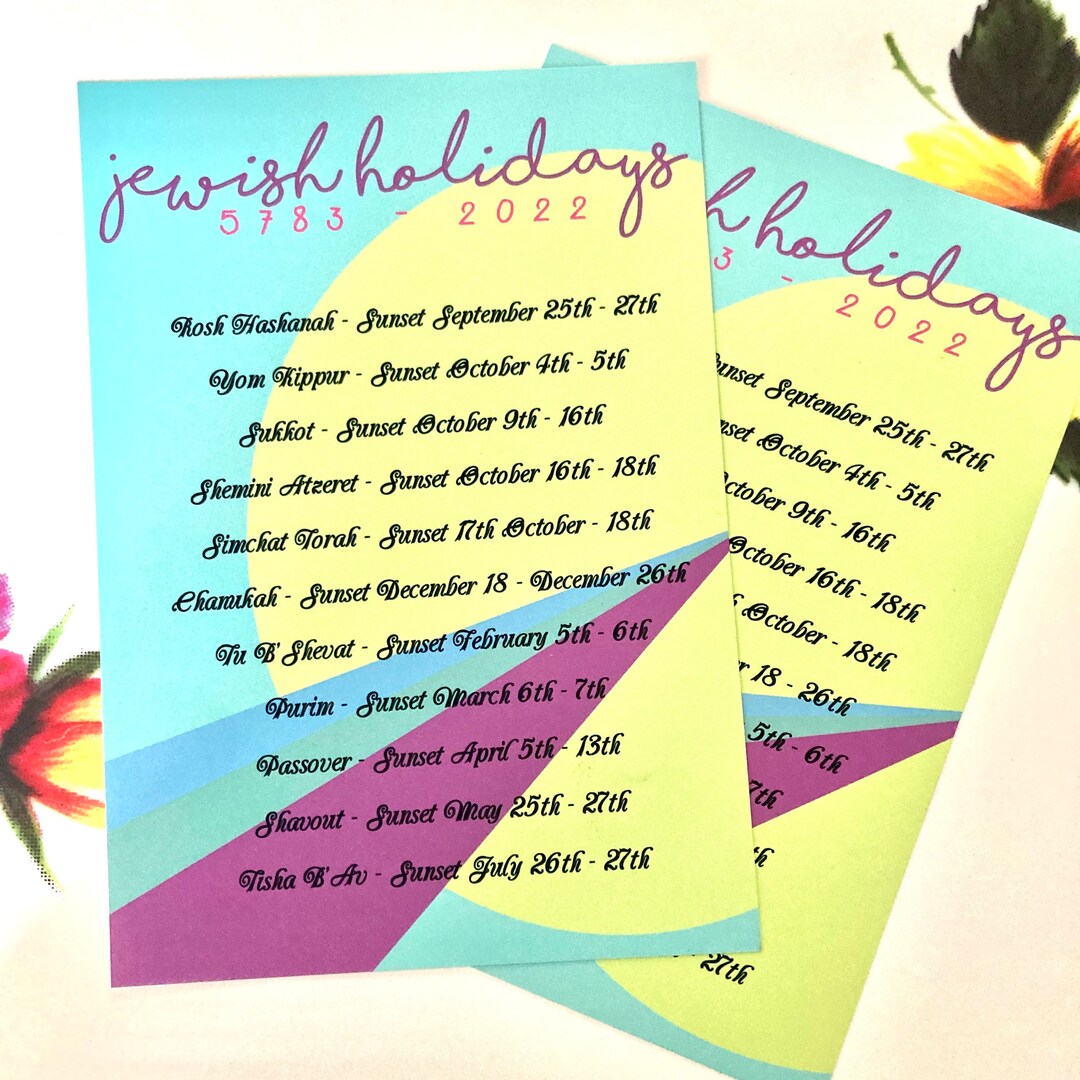 jewish holidays
5783 - 2022
Rosh Hashanah - Sunset September 25th - 27th
Yom Kippur - Sunset October 4th - 5th
Sukkot - Sunset October 9th - 16th
Shemini Atzeret - Sunset October 16th - 18th
Simchat Torah - Sunset 17th October - 18th
Chanukah - Sunset December 18 - December 26th
Tu B'Shevat - Sunset February 5th - 6th
Purim - Sunset March 6th - 7th
Passover - Sunset April 5th - 13th
Shavout - Sunset May 25th - 27th
Tisha B'Av - Sunset July 26th - 27th
h holidays
3 - 2022
unset September 25th - 27th
nset October 4th - 5th
ctober 9th - 16th
October 16th - 18th
October - 18th
r 18 - 26th
5th - 6th
7th
th
27th